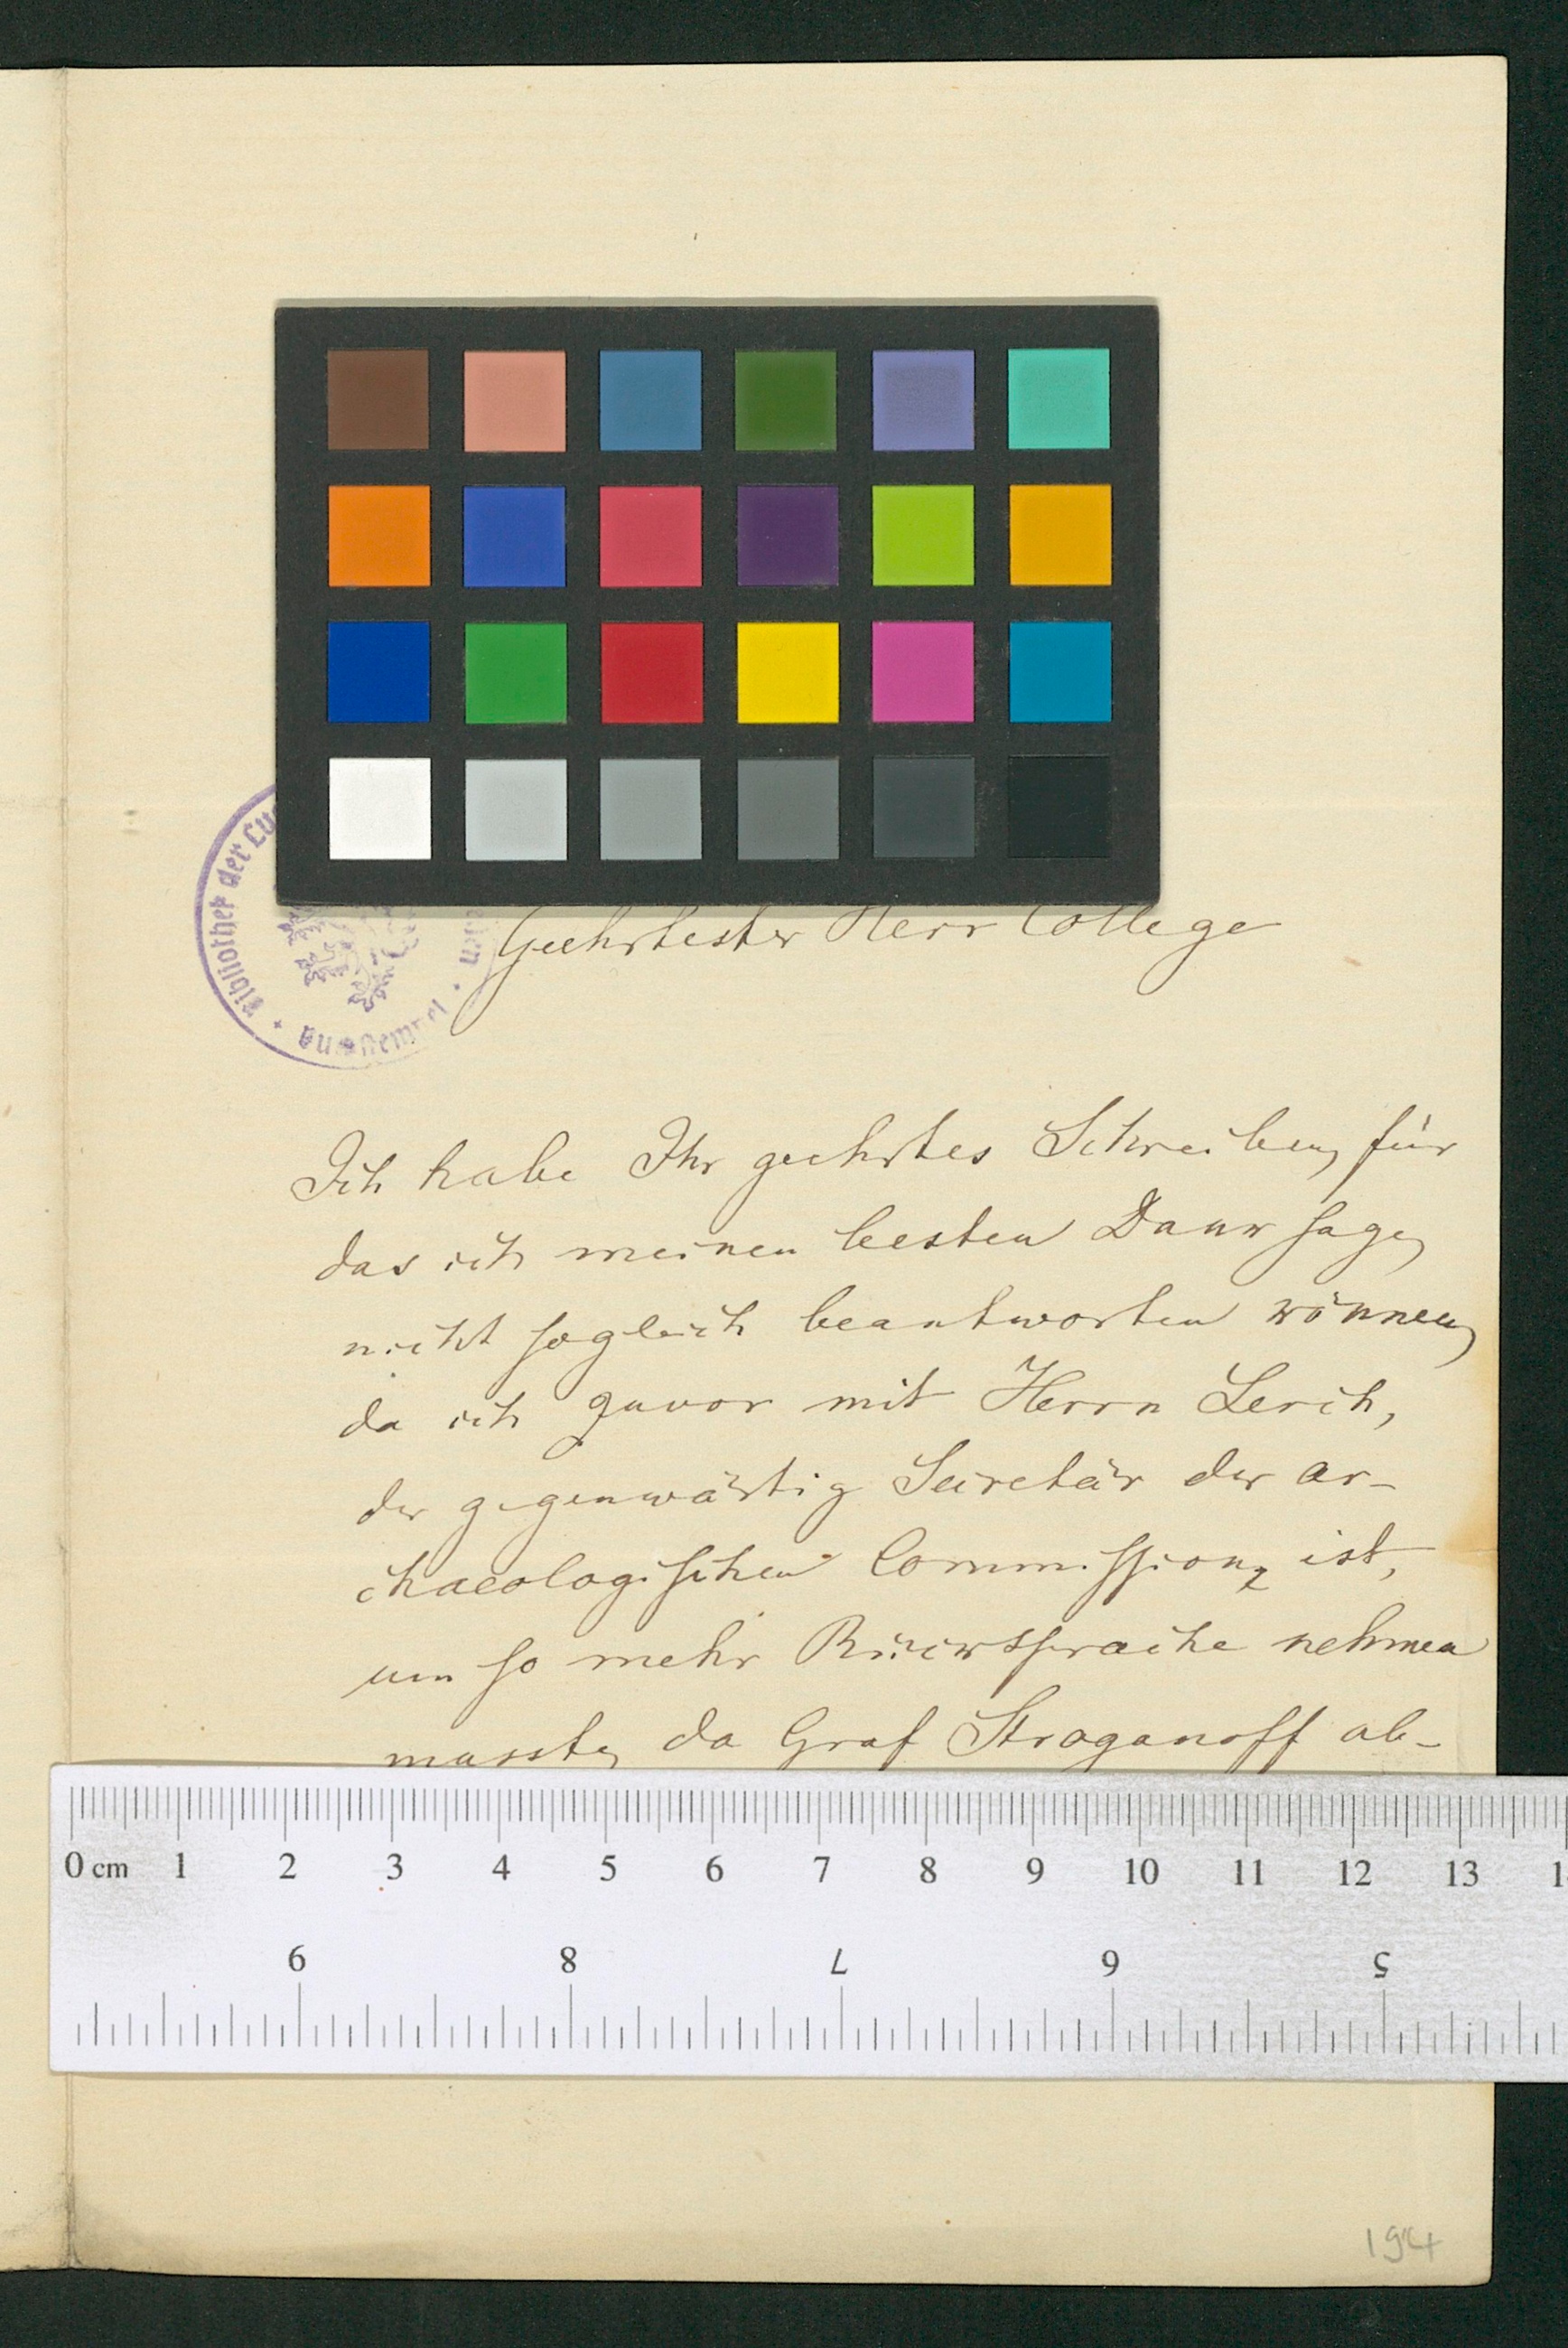 Geehrtester Herr College
Ich habe Ihr geehrtes Schreiben, für
das ich meinen besten Dank sage,
nicht sogleich beantworten können,
da ich zuvor mit Herrn Lerch,
der gegenwärtig Secretär der ar-
chaeologischen Commission, ist,
um so mehr Rücksprache nehmen
musste, da Graf Stroganoff ab-
Bibliothek der
0 cm 1 2 3 4 5 6 7 8 9 10 11 12 13 1
9 8 7 6 5
194